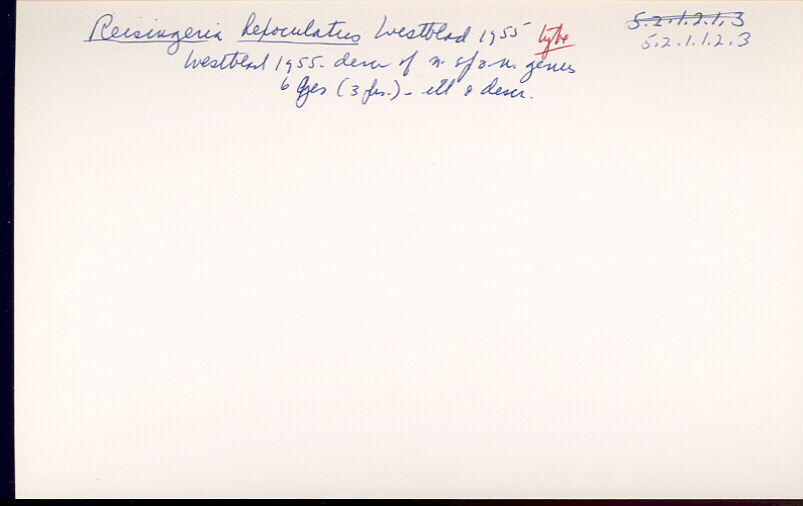 Reisingeria hexoculatus Westblad 1955 type
5.2.1.2.1.3
5.2.1.1.2.3
Westblad 1955. descr of n. sp & n. genus
6 figs (3 figs.) - ill & descr.